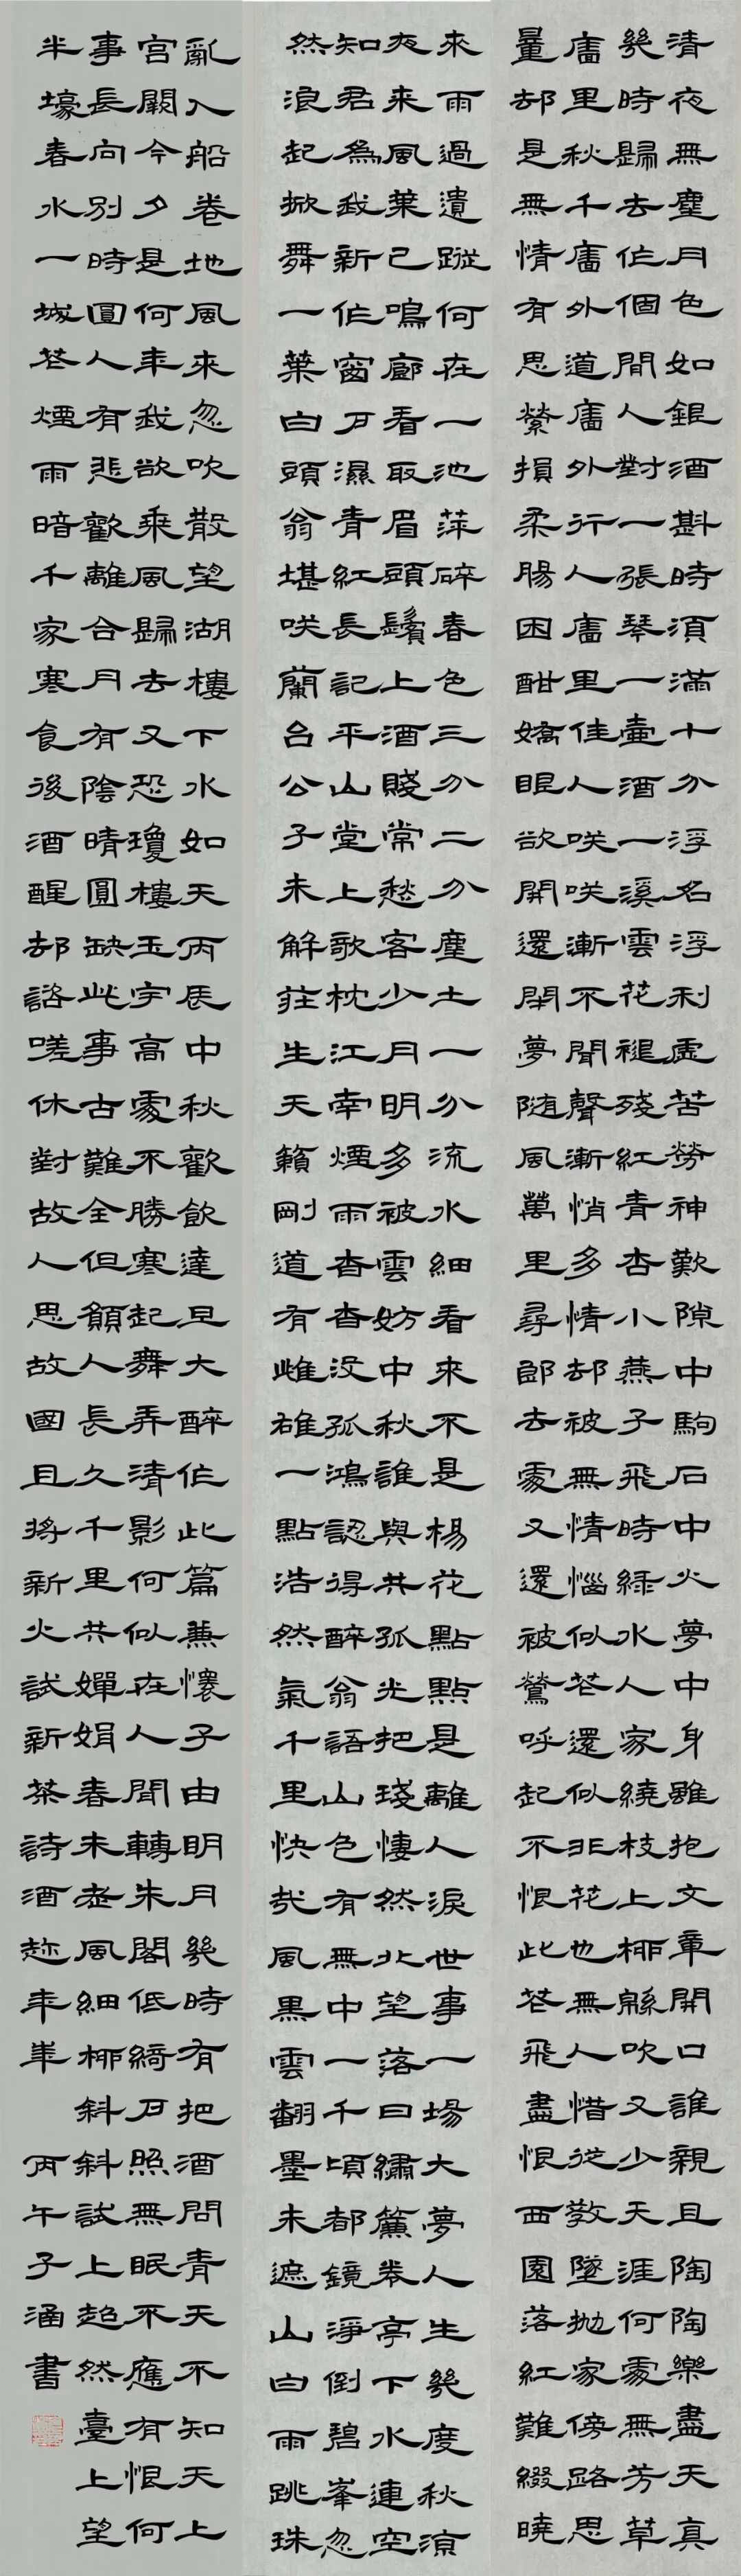 清夜無塵月色如銀酒斟時須滿十分浮名浮利虛苦勞神歎隙中駒石中火夢中身雖抱文章開口誰親且陶陶樂盡天真
幾時歸去作個閒人對一張琴一壺酒一溪雲花褪殘紅青杏小燕子飛時綠水人家繞枝上柳緜吹又少天涯何處無芳草
廧里秋千廧外道廧外行人廧里佳人咲咲漸不聞聲漸悄多情却被無情惱似花還似非花也無人惜從教墜拋家傍路思
量却是無情有思縈損柔腸困酣嬌眼欲開還閉夢隨風萬里尋郎去處又還被鶯呼起不恨此花飛盡恨西園落紅難綴曉
來雨過遺蹤何在一池萍碎春色三分二分塵土一分流水細看來不是楊花點點是離人淚世事一場大夢人生幾度秋涼
夜來風葉已鳴廊看取眉頭鬢上酒賤常愁客少月明多被雲妨中秋誰與共孤光把琖悽然北望落日繡簾捲亭下水連空
知君為我新作窗戶濕青紅長記平山堂上欹枕江南煙雨杳杳沒孤鴻認得醉翁語山色有無中一千頃都鏡淨倒碧峯忽
然浪起掀舞一葉白頭翁堪咲蘭台公子未解莊生天籟剛道有雌雄一點浩然氣千里快哉風黑雲翻墨未遮山白雨跳珠
亂入船卷地風來忽吹散望湖樓下水如天丙辰中秋歡飲達旦大醉作此篇兼懷子由明月幾時有把酒問青天不知天上
宮闕今夕是何年我欲乘風歸去又恐瓊樓玉宇高處不勝寒起舞弄清影何似在人間轉朱閣低綺戶照無眠不應有恨何
事長向別時圓人有悲歡離合月有陰晴圓缺此事古難全但願人長久千里共嬋娟春未老風細柳斜斜試上超然臺上望
半壕春水一城花煙雨暗千家寒食後酒醒却諮嗟休對故人思故國且將新火試新茶詩酒趁年華 丙午子涵書